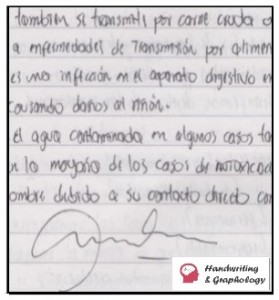 también se transmite por carne cruda o
a enfermedades de Transmisión por alimen
es una infección en el aparato digestivo
causando daños al riñón.
El agua contaminada en algunos casos ta
n la mayoria de los casos de
ombre debido a su contacto directo con
Handwriting
& Graphology